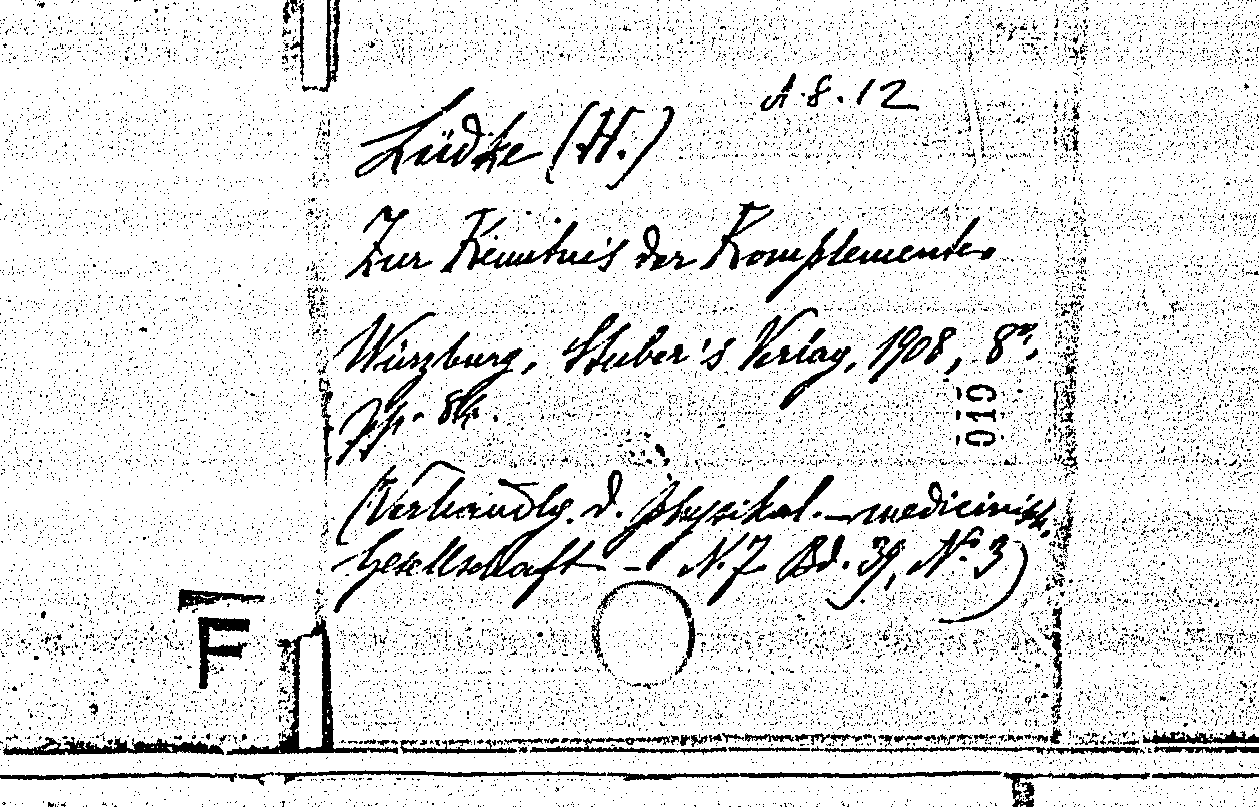 A.8.12
Lüdke (H.)
Zur Kenntnis der Komplemente.
Würzburg, Stuber's Verlag, 1908, 8°,
pp. 84.
(Verhandlg. d. physikal.-medicinisch.
Gesellschaft - N.F. Bd. 39, N° 3)
019
F